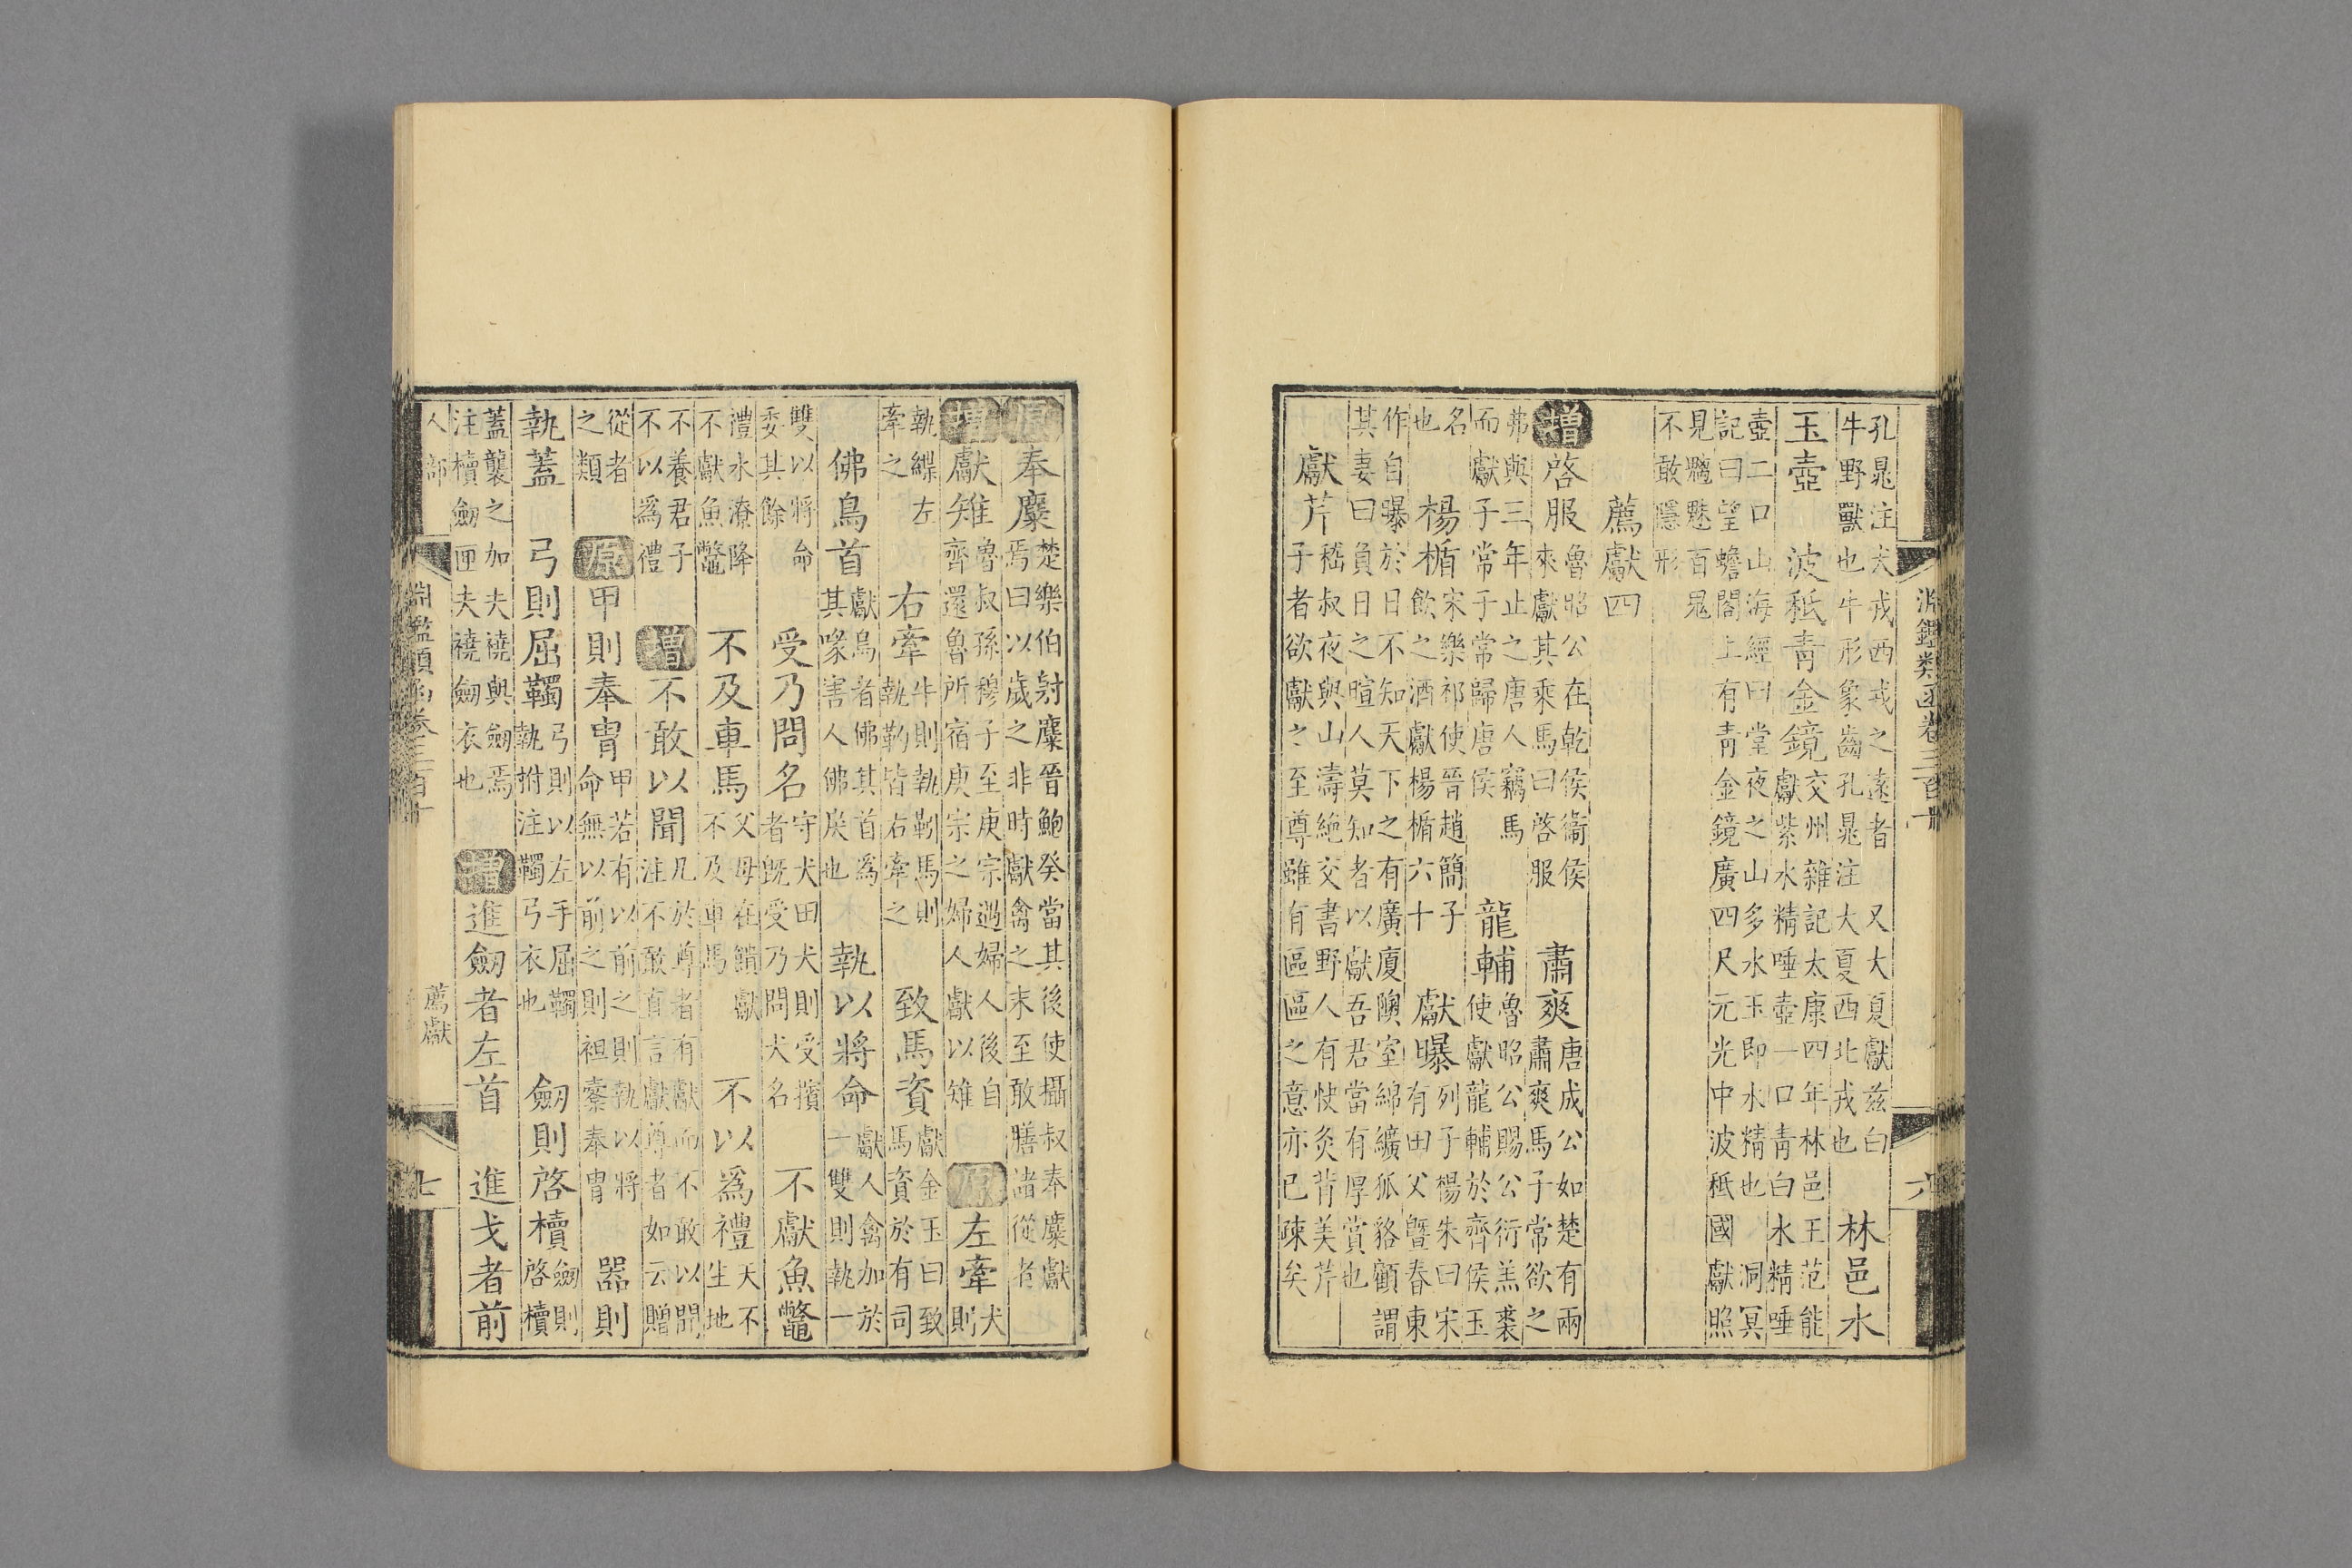 淵鑑類函卷三百十
六
孔晁注犬戎西戎之遠者 又大夏獻兹白
牛野獸也牛形象齒孔晁注大夏西北戎也
林邑水
玉壺
交州雜記太康四年林邑王范能
獻紫水精唾壺一口青白水精唾
壺二口
波秖青金鏡
山海經曰堂夜之山多水玉即水精也 洞冥
記曰望蟾閣上有青金鏡廣四尺元光中波秖國獻照
見魑魅百鬼
不敢隱形
薦獻四
增
啓服
魯昭公在乾侯衞侯
來獻其乘馬曰啓服
肅爽
唐成公如楚有兩
肅爽馬子常欲之
弗與三年止之唐人竊馬
而獻子常子常歸唐侯
龍輔
魯昭公賜公衍羔裘
使獻龍輔於齊侯玉
名
也
楊楯
宋樂祁使晉趙簡子
飲之酒獻楊楯六十
獻曝
列子楊朱曰宋
有田父曁春東
作自曝於日不知天下之有廣廈隩室綿纊狐貉顧謂
其妻曰負日之暄人莫知者以獻吾君當有厚賞也
獻芹
嵇叔夜與山濤絶交書野人有快炙背美芹
子者欲獻之至尊雖有區區之意亦已疎矣
原
奉麋
楚樂伯射麋晉鮑癸當其後使攝叔奉麋獻
焉曰以歲之非時獻禽之未至敢膳諸從者
增
獻雉
魯叔孫穆子至庚宗遇婦人後自
齊還魯所宿庚宗之婦人獻以雉
原
左牽
犬
則
執緤左
牽之
右牽
牛則執靷馬則
執靮皆右牽之
致馬資
獻金玉曰致
馬資於有司
佛鳥首
獻鳥者佛其首爲
其喙害人佛戾也
執以將命
獻人禽加於
一雙則執一
雙以將命
委其餘
受乃問名
守犬田犬則受擯
者旣受乃問犬名
不獻魚鼈
禮水潦降
不獻魚鼈
不及車馬
父母在饋獻
不及車馬
不以爲禮
天不
生地
不養君子
不以爲禮
增
不敢以聞
凡於尊者有獻而不敢以聞
注不敢直言獻尊者如云贈
從者
之類
原
甲則奉冑
甲若有以前之則執以將
命無以前之則袒櫜奉冑
器則
執蓋
弓則屈韣
弓則以左手屈韣
執拊注韣弓衣也
劒則啓櫝
劒則
啓櫝
蓋襲之加夫襓與劒焉
注櫝劒匣夫襓劒衣也
增
進劒者左首
進戈者前
人部
淵鑑類函卷三百十
薦獻
七